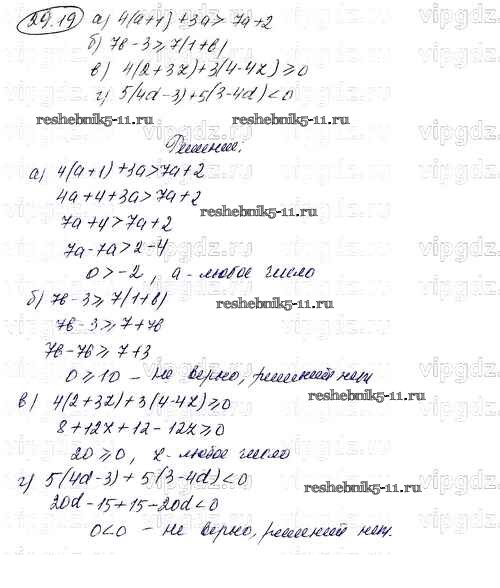 29.19 а) 4(a+1)+3a>7a+2
б) 7в-3⩾7(1+в)
в) 4(2+3z)+3(4-4z)⩾0
г) 5(4d-3)+5(3-4d)<0
reshebnik5-11.ru reshebnik5-11.ru
Решение:
а) 4(a+1)+3a>7a+2
4a+4+3a>7a+2
reshebnik5-11.ru
7a+4>7a+2
7a-7a>2-4
0>-2, a-любое число
б) 7в-3⩾7(1+в)
reshebnik5-11.ru
7в-3⩾7+7в
7в-7в⩾7+3
0⩾10 - не верно, решений нет
в) 4(2+3z)+3(4-4z)⩾0
reshebnik5-11.ru
8+12z+12-12z⩾0
20⩾0, z-любое число
г) 5(4d-3)+5(3-4d)<0
reshebnik5-11.ru
20d-15+15-20d<0
0<0 - не верно, решений нет.
vipgdz.ru